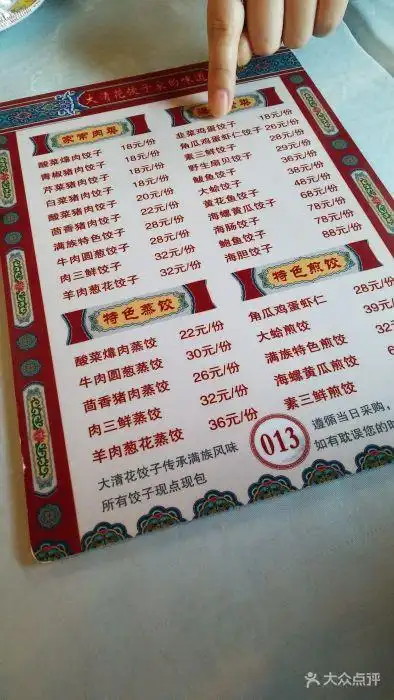 大清花饺子家的味道
家常肉琪
酸菜爆肉饺子 18元/份
青椒猪肉饺子 18元/份
芹菜猪肉饺子 18元/份
白菜猪肉饺子 18元/份
酸菜猪肉饺子 20元/份
茴香猪肉饺子 22元/份
满族特色饺子 28元/份
牛肉圆葱饺子 28元/份
肉三鲜饺子 32元/份
羊肉葱花饺子 32元/份
韭菜鸡蛋饺子 18元/份
角瓜鸡蛋虾仁饺子 26元/份
素三鲜饺子 28元/份
野生扇贝饺子 29元/份
鲅鱼饺子 36元/份
大蛤饺子 38元/份
黄花鱼饺子 48元/份
海螺黄瓜饺子 68元/份
海肠饺子 78元/份
鲍鱼饺子 78元/份
海胆饺子 88元/份
特色蒸饺
酸菜爆肉蒸饺 22元/份
牛肉圆葱蒸饺 30元/份
茴香猪肉蒸饺 26元/份
肉三鲜蒸饺 32元/份
羊肉葱花蒸饺 36元/份
特色煎饺
角瓜鸡蛋虾仁 28元/份
大蛤煎饺 39元/
满族特色煎饺 32元
海螺黄瓜煎饺 68
素三鲜煎饺
大清花饺子传承满族风味
所有饺子现点现包
013
遵循当日采购，
如有耽误您的
大众点评